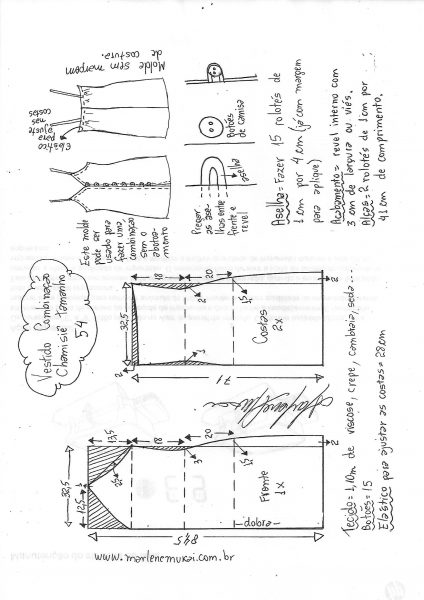 Vestido Combinação
Chamisië tamanho
54
Elástico
para
ajuste
nas
costas
Molde sem margem
de costura.
Este molde
pode ser
usado para
fazer uma
combinação
sem o
abotoamento
Pregar
as ase-
lhas entre
frente e
revel
aselha
Botões
de camisa
Aselha = Fazer 15 rolotês de
1 cm por 4 cm (já com margem
para aplique)
Acabamento = revel interno com
3 cm de largura ou viés.
Alças = 2 rolotês de 1cm por
41 cm de comprimento.
32,5
2
18
20
2
3
1,5
2
71
Costas
2x
32,5
12,5
13,5
18
20
1,5
3
1,5
2
84,5
Frente
1x
-dobra-
Tecido = 1,10m de viscose, crepe, cambraia, seda...
Botões = 15
Elástico para ajustar as costas = 28cm
www.marlenemukai.com.br